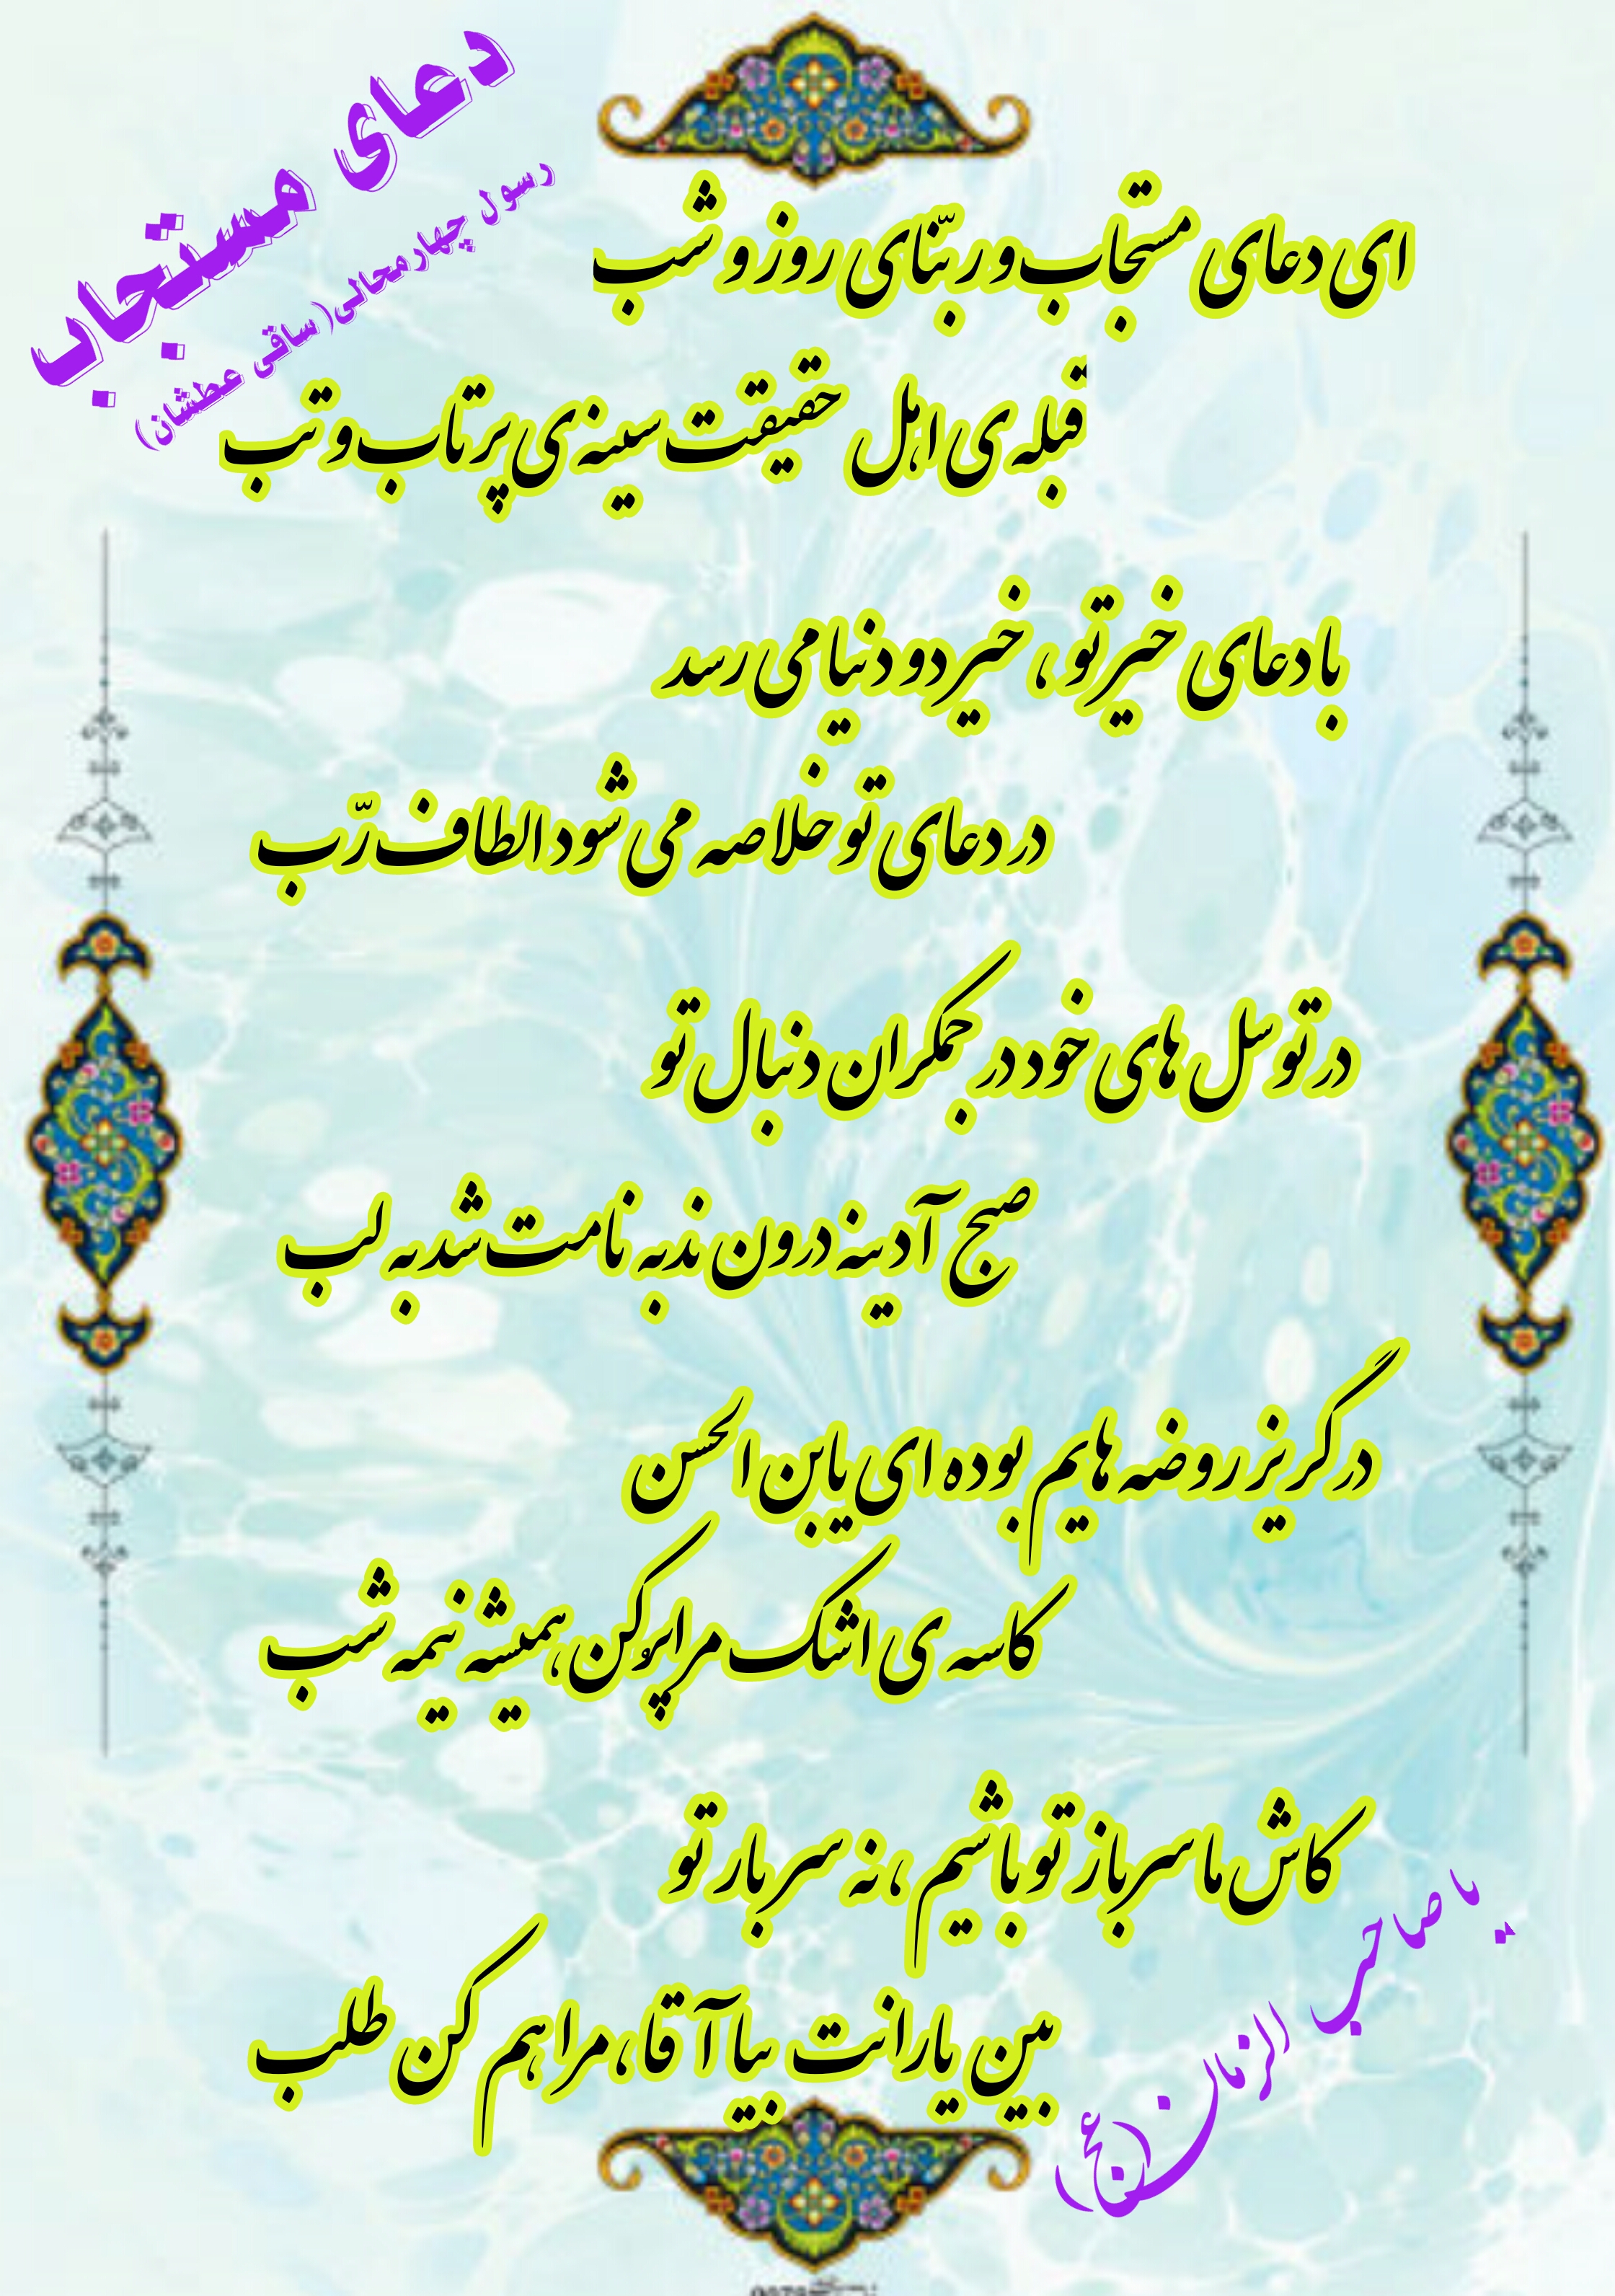 دعای مستجاب
رسول چهارمحالی(ساقی عطشان)
ای دعای مستجاب و ربّنای روز و شب
قبله ی اهل حقیقت سینه ی پر تاب و تب
با دعای خیر تو ، خیر دو دنیا می رسد
در دعای تو خلاصه می شود الطاف رّب
در توسّل های خود در جمکران دنبال تو
صبح آدینه درون ندبه نامت شد به لب
در گریز روضه هایم بوده ای یابن الحسن
کاسه ی اشک مرا پرُ کن ،همیشه نیمه شب
کاش ما سرباز تو باشیم ،نه سربار تو
بین یارانت بیا آقا،مرا هم کن طلب
یا صاحب الزمان(عج)